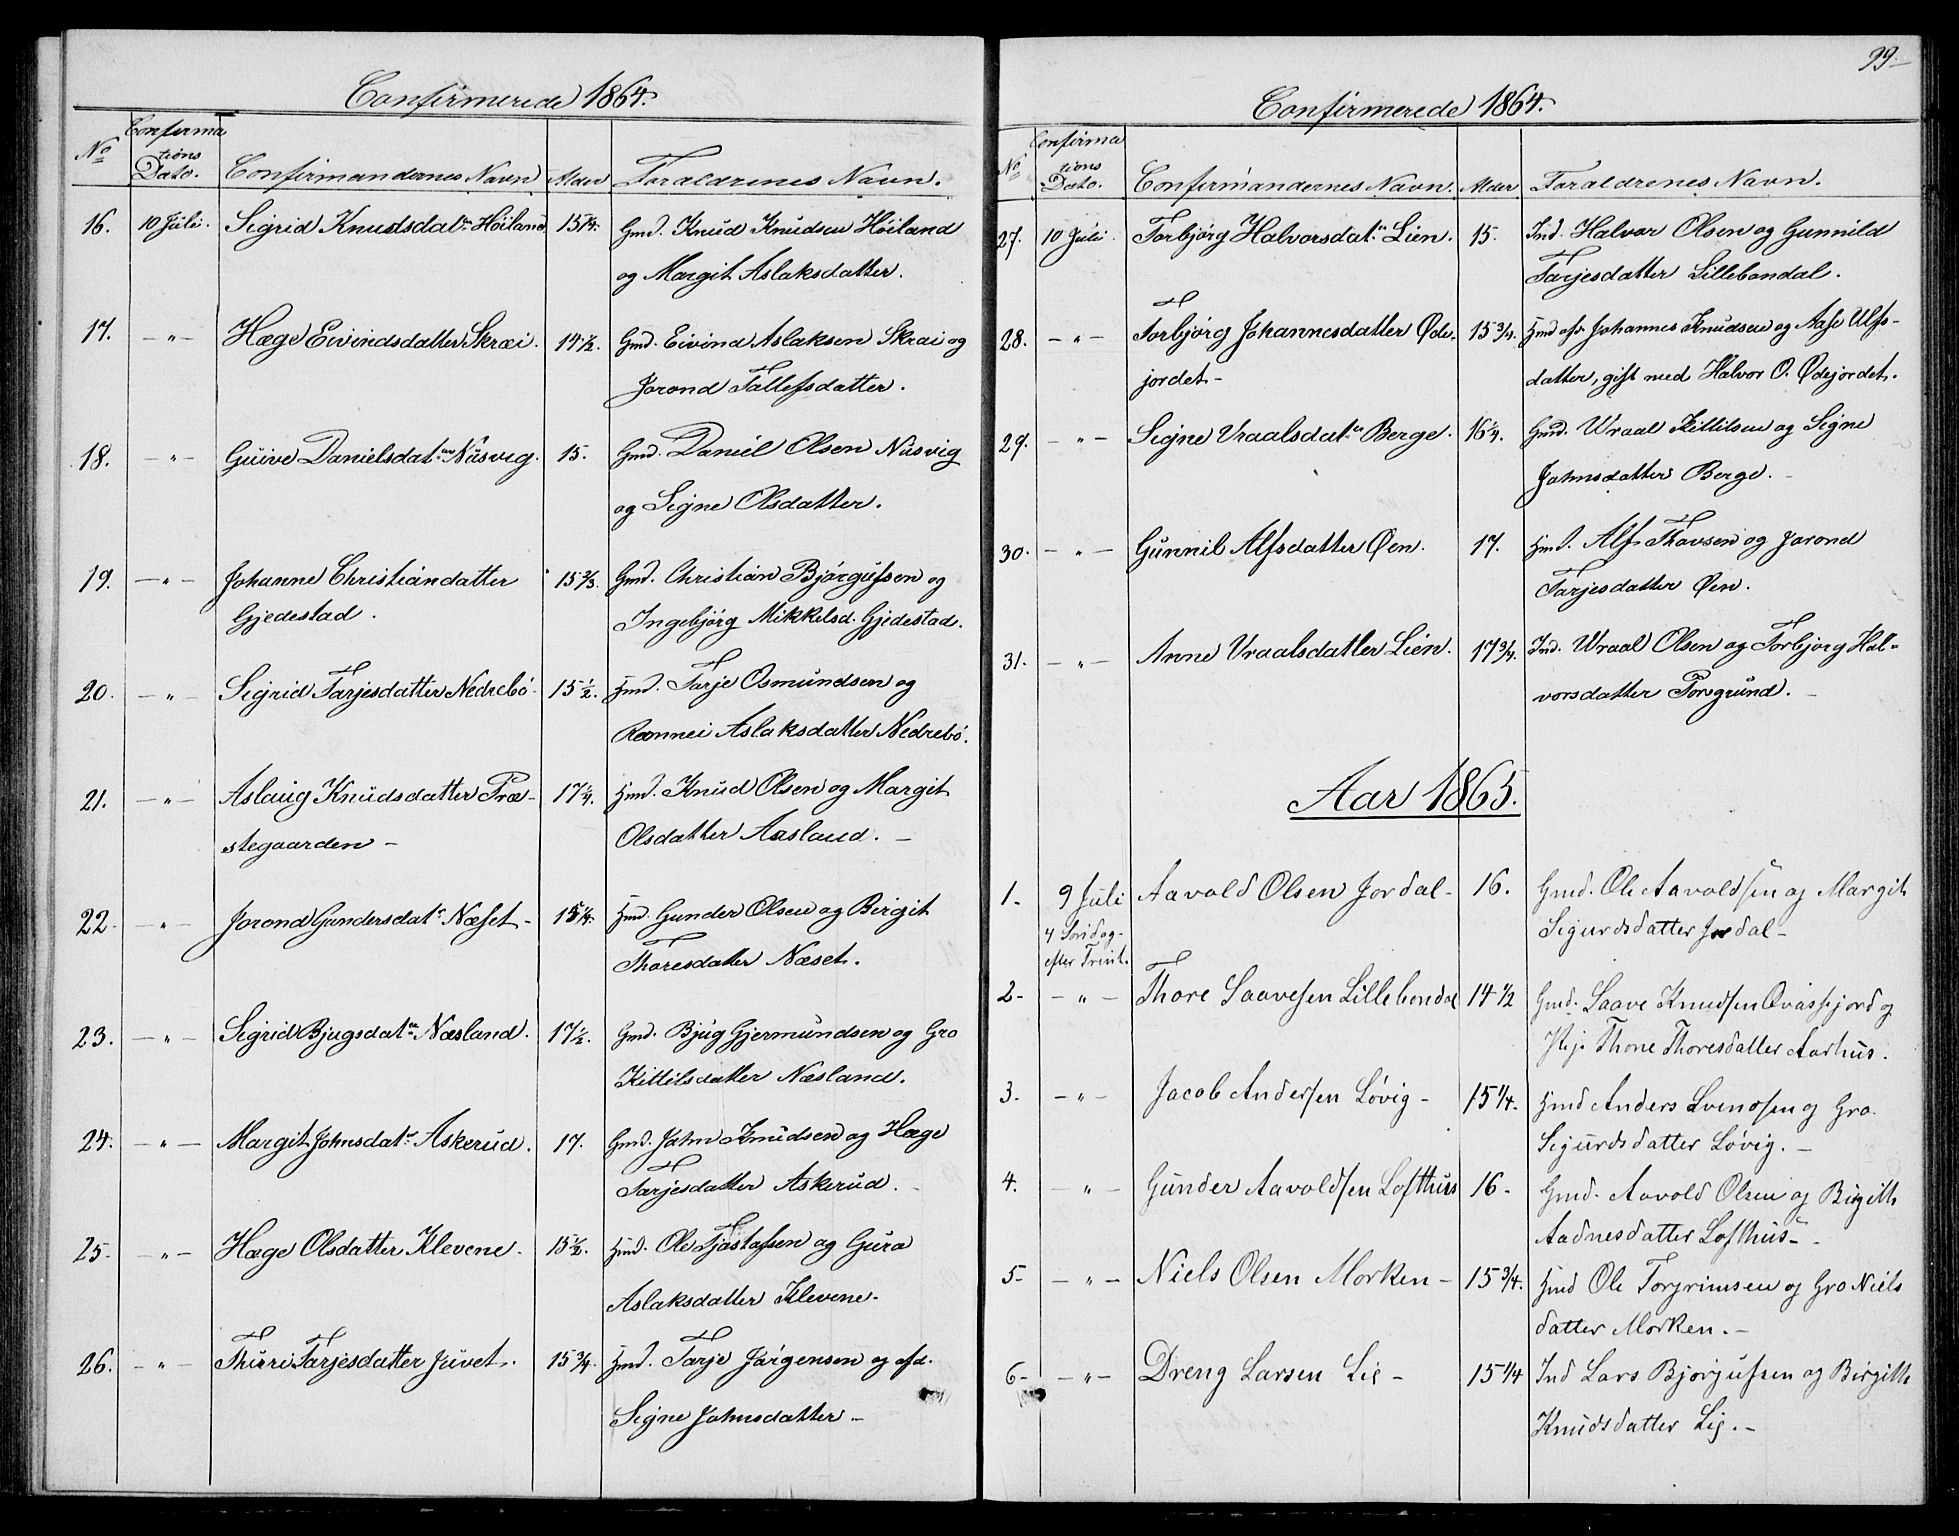 Confirmerede 1864.
No Confirmationsdato. Confirmandernes Navn Alder Forældrenes Navn.
16. 10 Juli. Sigrid Knudsdatr Høiland 15 1/4. Gmd. Knud Knudsen Høiland
og Margit Aslaksdatter.
17. — " — Hæge Eivindsdatter Skræi. 14 1/2. Gmd. Eivind Aslaksen Skrai og
Jorond Tallefsdatter.
18. — " — Guive Danielsdatr Næsvig. 15. Gmd. Daniel Olsen Næsvig
og Signe Olsdatter.
19. — " — Johanne Christiandatter 15 2/3. Gmd. Christian Bjørgufsen og
Gjedestad. Ingebjørg Mikkelsd. Gjedestad.
20. — " — Sigrid Tarjesdatter Nedrebø. 15 1/2. Hmd. Tarje Osmundsen og
Rønnei Aslaksdatter Nedrebø.
21. — " — Aslaug Knudsdatter Præ- 17 1/4. Hmd. Knud Olsen og Margit
stegaarden — Olsdatter Aasland. —
22. — " — Jorond Gundersdatr Næset — 15 1/4. Hmd. Gunder Olsen og Birgit
Thoresdatter Næset.
23. — " — Sigrid Bjugsdatr Næsland. 17 1/2. Gmd. Bjug Gjermundsen og Gro
Kittilsdatter Næsland.
24. — " — Margit Johnsdatr Askerud. 17. Gmd. John Knudsen og Hæge
Tarjesdatter Askerud.
25. — " — Hæge Olsdatter Klevene. 15 1/2. Hmd. Ole Tjøstafsen og Gura
Aslaksdatter Klevene.
26. — " — Thurri Tarjesdatter Juvet. 15 3/4. Hmd. Tarje Jørgensen og afd.
Signe Johnsdatter —
99—
Confirmerede 1864.
No Confirmationsdato. Confirmandernes Navn. Alder Forældrenes Navn.
27. 10 Juli. Torbjørg Halvorsdatr Lien. 15. Ind. Halvor Olsen og Gunnild
Tarjesdatter Lillebondal.
28. — " — Torbjørg Johannesdatter Øde- 15 3/4. Hmd afd. Johannes Knudsen og Aase Ulfs-
jordet — datter, gift med Halvor O. Ødejordet.
29. — " — Signe Vraalsdatr Berge. 16 1/4. Gmd. Wraal Kittilsen og Signe
Johnsdatter Berge. —
30. — " — Gunnil Alfsdatter Øen. 17. Hmd. Alf Thovsen og Jorond
Tarjesdatter Øen.
31. — " — Anne Vraalsdatter Lien. 17 3/4. Ind. Wraal Olsen og Torbjørg Hal-
vorsdatter Porsgrund. —
Aar 1865.
1. 9 Juli Aavold Olsen Jordal — 16. Gmd. Ole Aavoldsen og Margit
4 Søndag Sigurdsdatter Jordal —
efter Trinit.
2 — — " — Thore Saavesen Lillebondal 14 1/2 Gmd. Saave Knudsen Qvasfjord og
Pige Thone Thoresdatter Aarhus.
3. — " — Jacob Andersen Løvig — 15 1/4. Hmd Anders Svendsen og Gro
Sigurdsdatter Løvig. —
4. — " — Gunder Aavoldsen Lofthus 16 — Gmd. Aavold Olsen og Birgith
Aadnesdatter Lofthus —
5 — — " — Niels Olsen Morken — 15 3/4. Hmd Ole Torgrimsen og Gro Niels
datter Morken. —
6 — — " — Dreng Larsen Lie — 15 1/4 Ind Lars Bjørgufsen og Birgith
Knudsdatter Lie. —